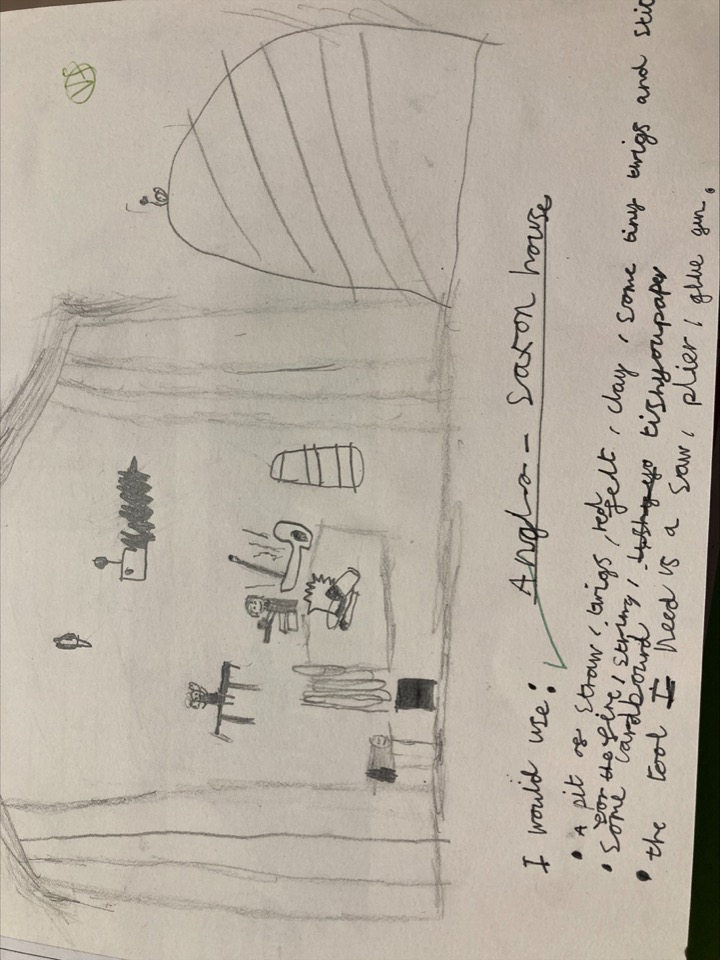 Anglo - saxon house
I would use:
• A pit of straw, twigs, red felt, clay, some tiny twigs and stic
for the fire, string,
• Some cardbourd tishyoupaper
• the tool I need is a saw, plier, glue gun.